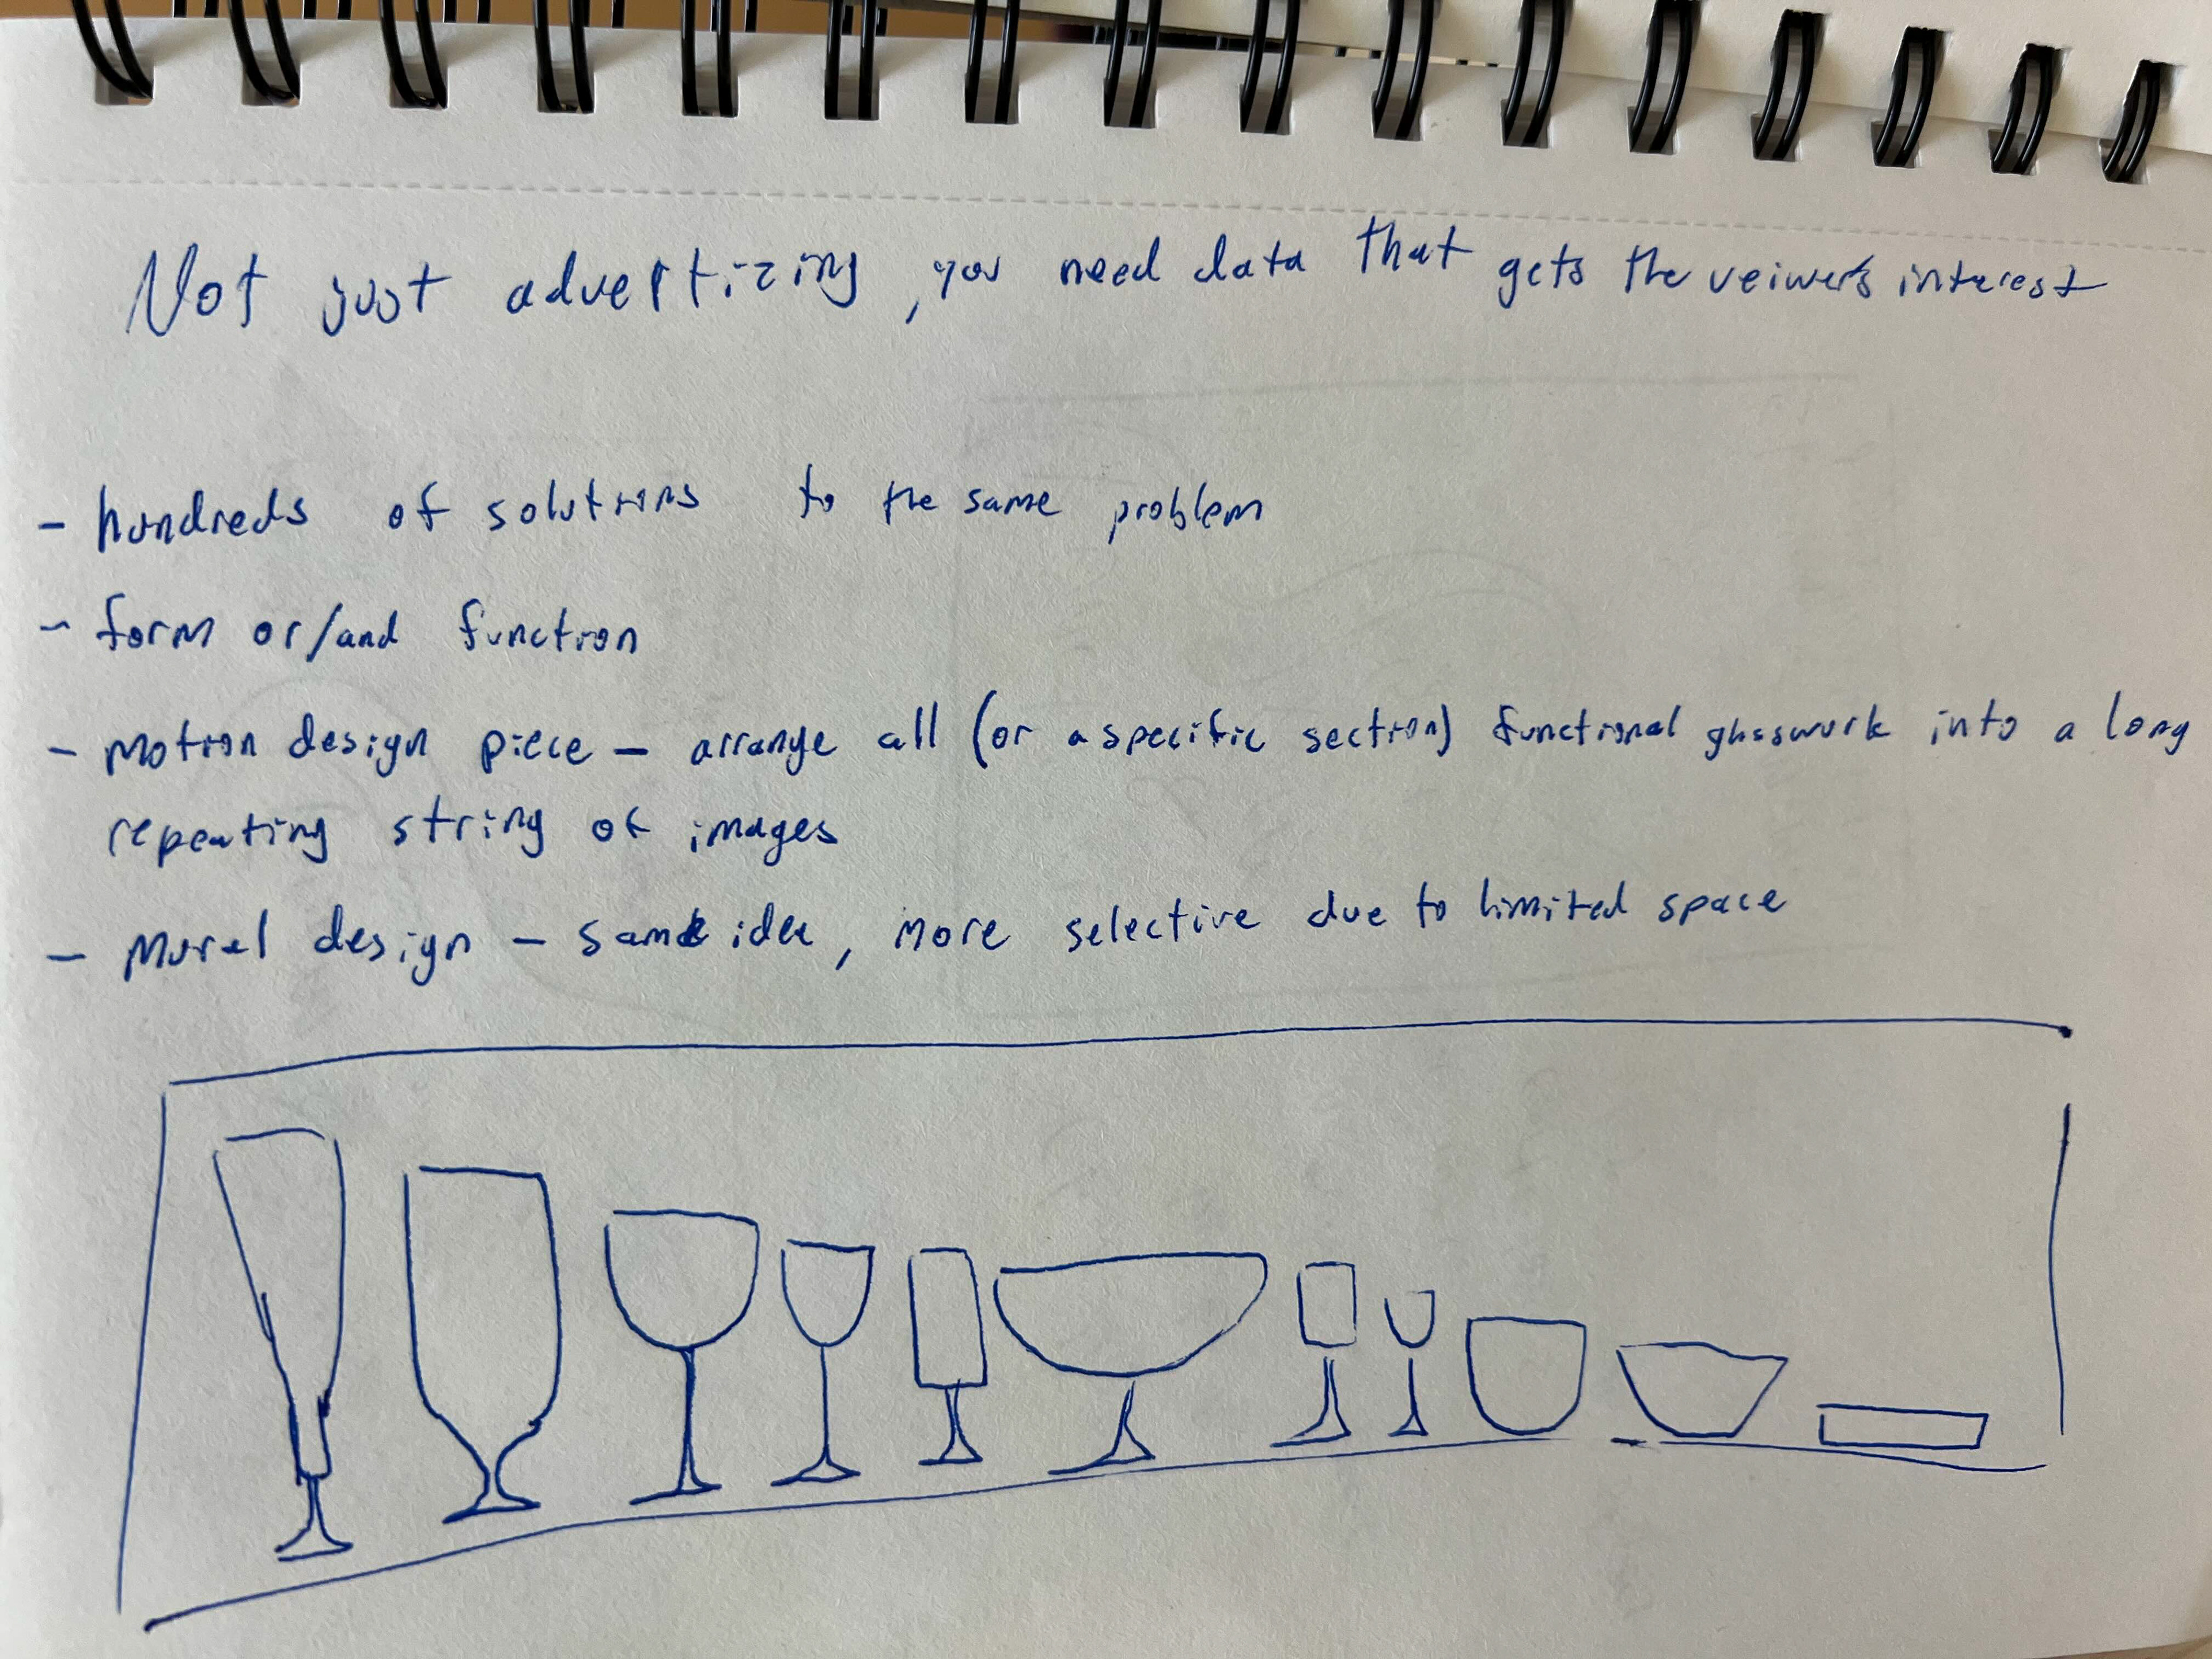 Not just advertizing, you need data that gets the veiwers interest
- hundreds of solutions to the same problem
- form or/and function
- Motion design piece - arrange all (or a specific section) functional glasswork into a long
repeating string of images
- Mural design - same idea, more selective due to limited space